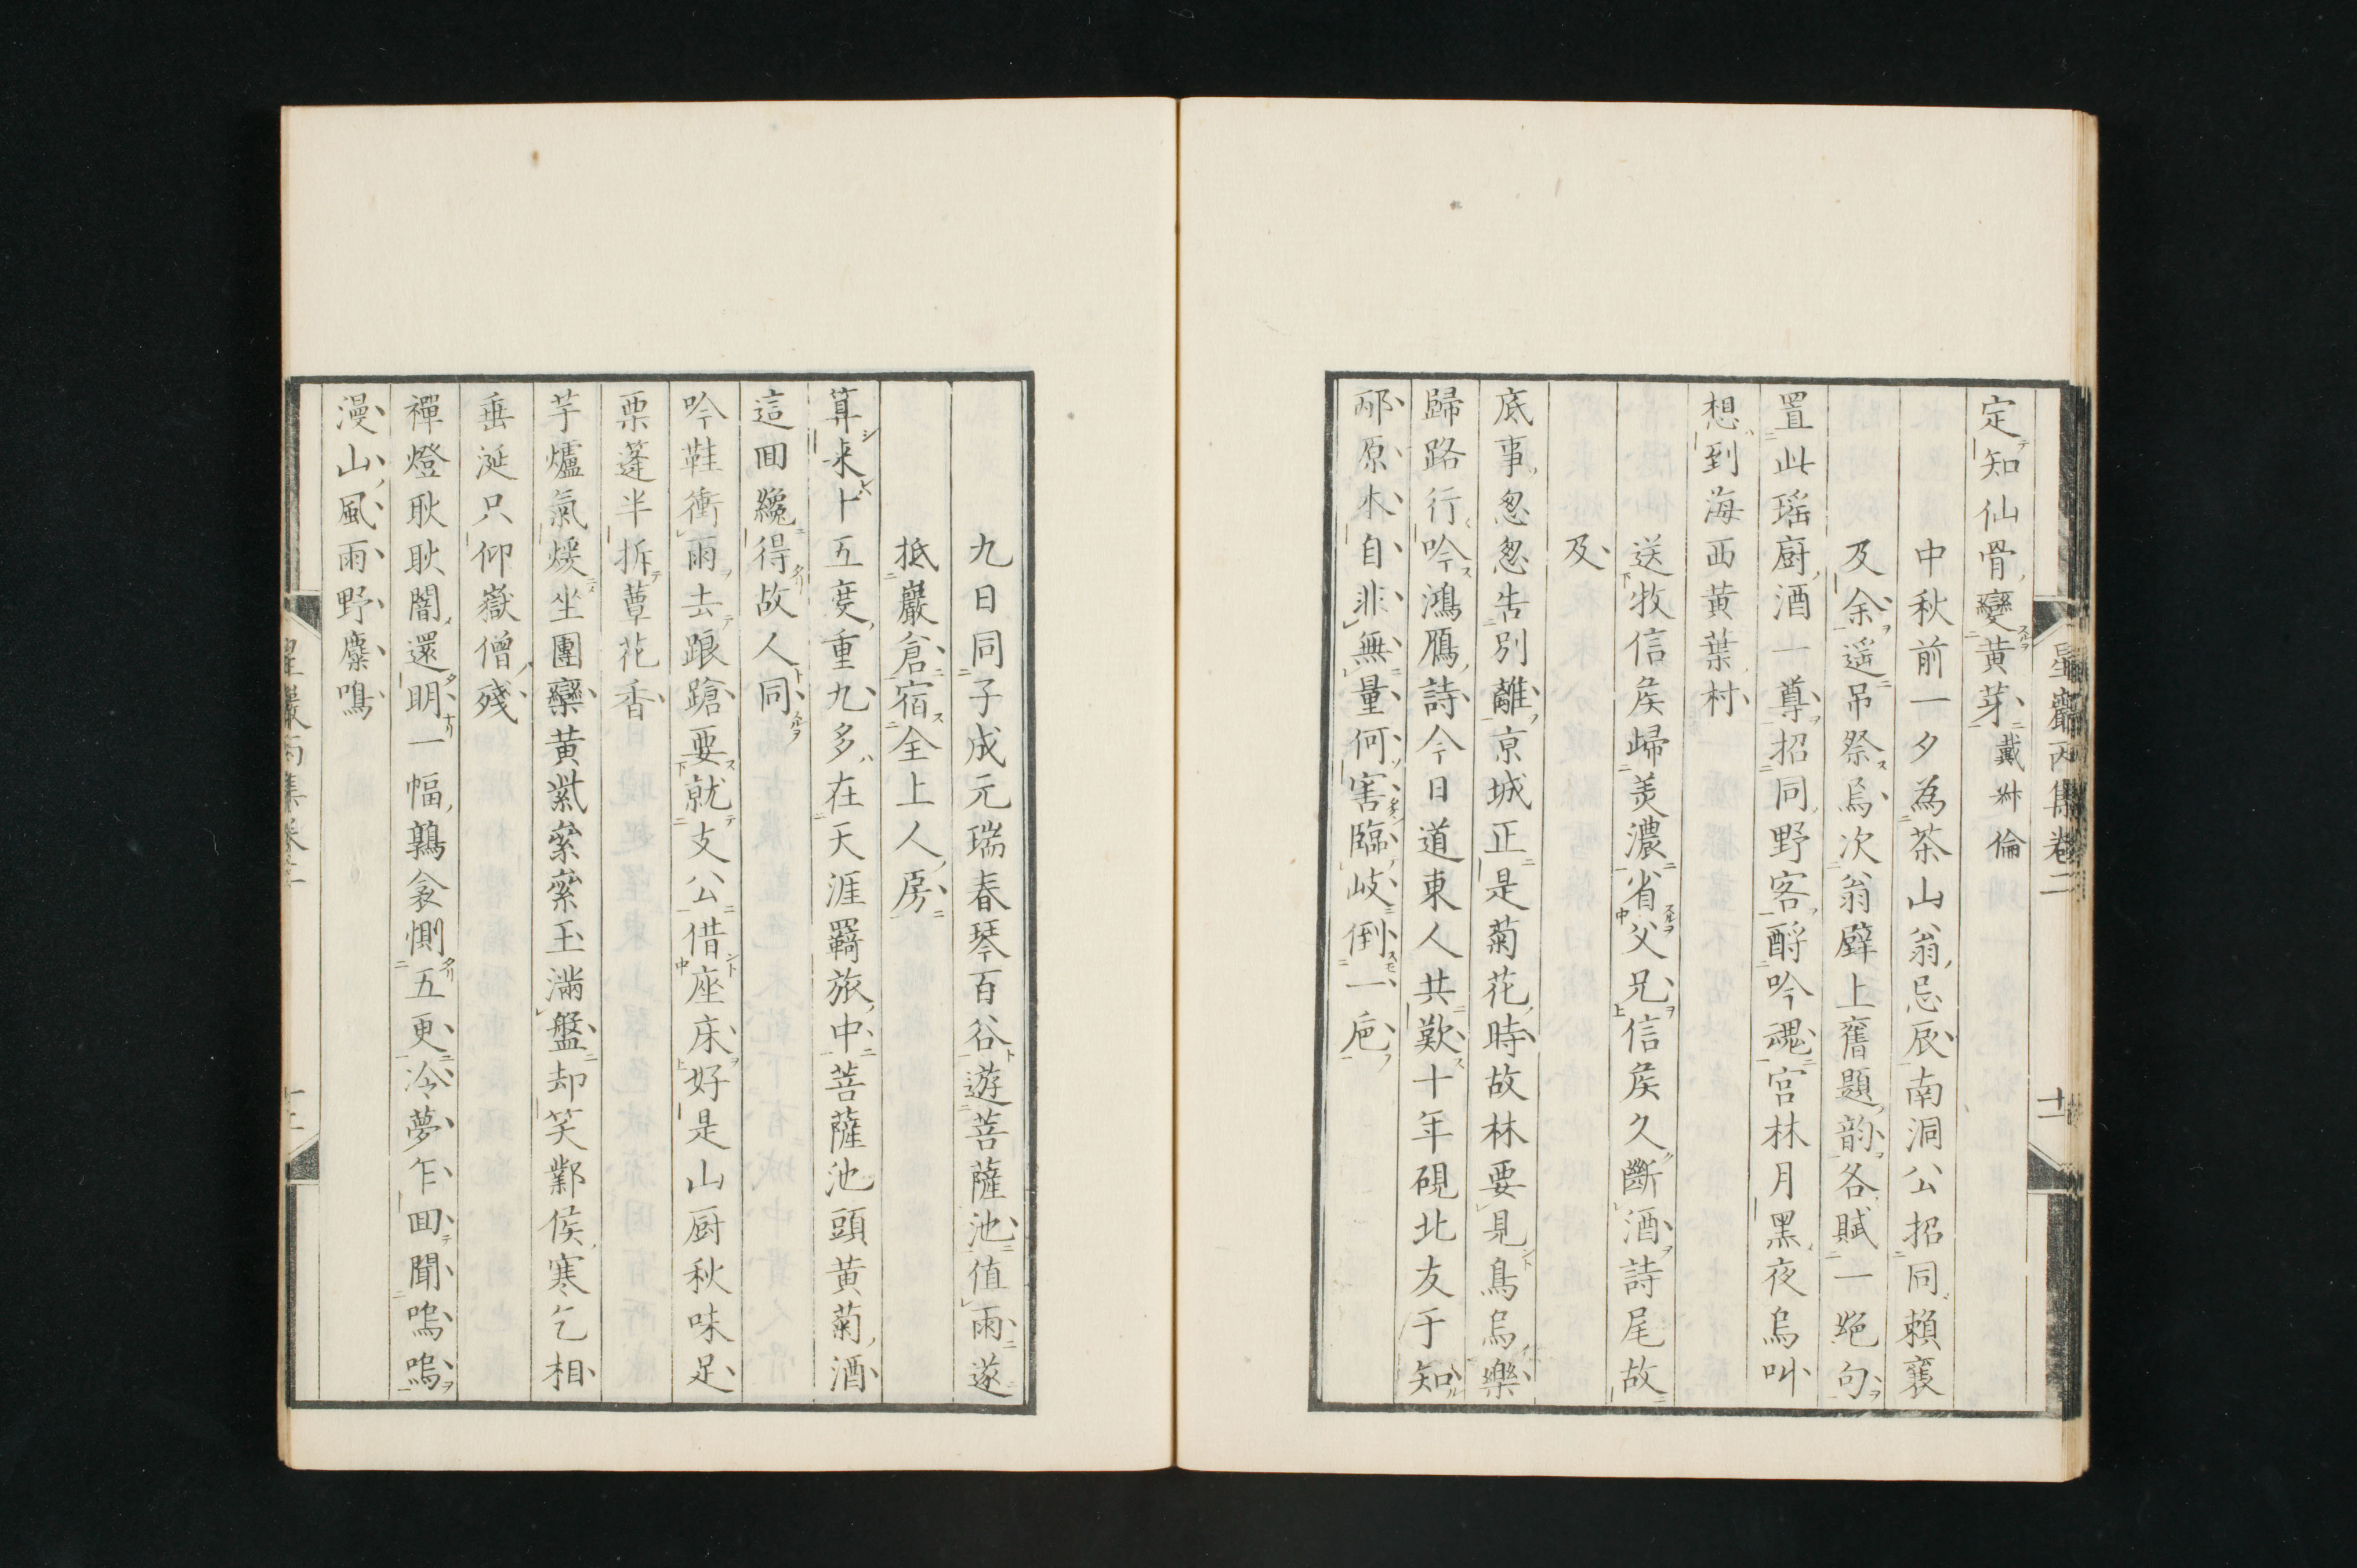 星巖丙集卷二
十一
定知仙骨變黃芽戴叔倫
中秋前一夕為茶山翁忌辰南洞公招同賴襄
及余遥吊祭焉次翁壁上舊題韵各賦一絶句
置此瑶厨酒一尊招同野客酹吟魂宮林月黑夜烏叫
想到海西黃葉村
送牧信矦歸羙濃省父兄信矦久斷酒詩尾故
及
底事忽忽告別離京城正是菊花時故林要見鳥烏樂
歸路行吟鴻鴈詩今日道東人共歎十年硯北友于知
邴原本自非無量何害臨岐倒一巵
九日同子成元瑞春琴百谷遊菩薩池值雨遂
抵巖倉宿全上人房
算来十五度重九多在天涯羇旅中菩薩池頭黃菊酒
這囬纔得故人同
吟鞋衝雨去踉蹌要就支公借座床好是山厨秋味足
栗蓬半拆蕈花香
芋爐氣煖坐團欒黃紫纍纍玉滿盤却笑鄴侯寒乞相
垂涎只仰嶽僧殘
禪燈耿耿闇還明一幅鶉衾惻五更冷夢乍囬聞嗚嗚
漫山風雨野麋鳴
星巖丙集卷二